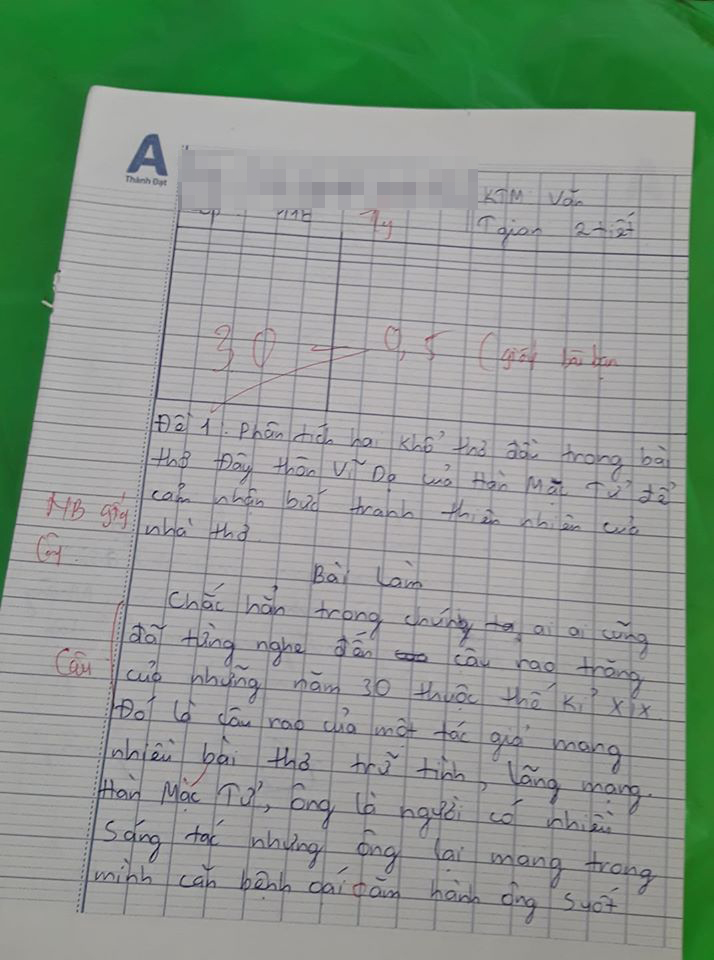 A
Thành Đạt
KTM Văn
Tgian 2 tiết
30 0,5 (giấy bài bạn
Đề 1: Phân tích hai khổ thơ đầu trong bài
thơ Đây thôn Vĩ Dạ của Hàn Mặc Tử để
cảm nhận bức tranh thiên nhiên của
nhà thơ.
MB gây
Bài Làm
Chắc hẳn trong chúng ta, ai ai cũng
đã từng nghe đến câu rao trăng
Câu
của những năm 30 thuộc thế kỉ XIX
Đó là câu rao của một tác giả mang
nhiều bài thơ trữ tình, lãng mạng.
Hàn Mặc Tử, ông là người có nhiều
sáng tác nhưng ông lại mang trong
mình căn bệnh oái oăm hành ông suốt